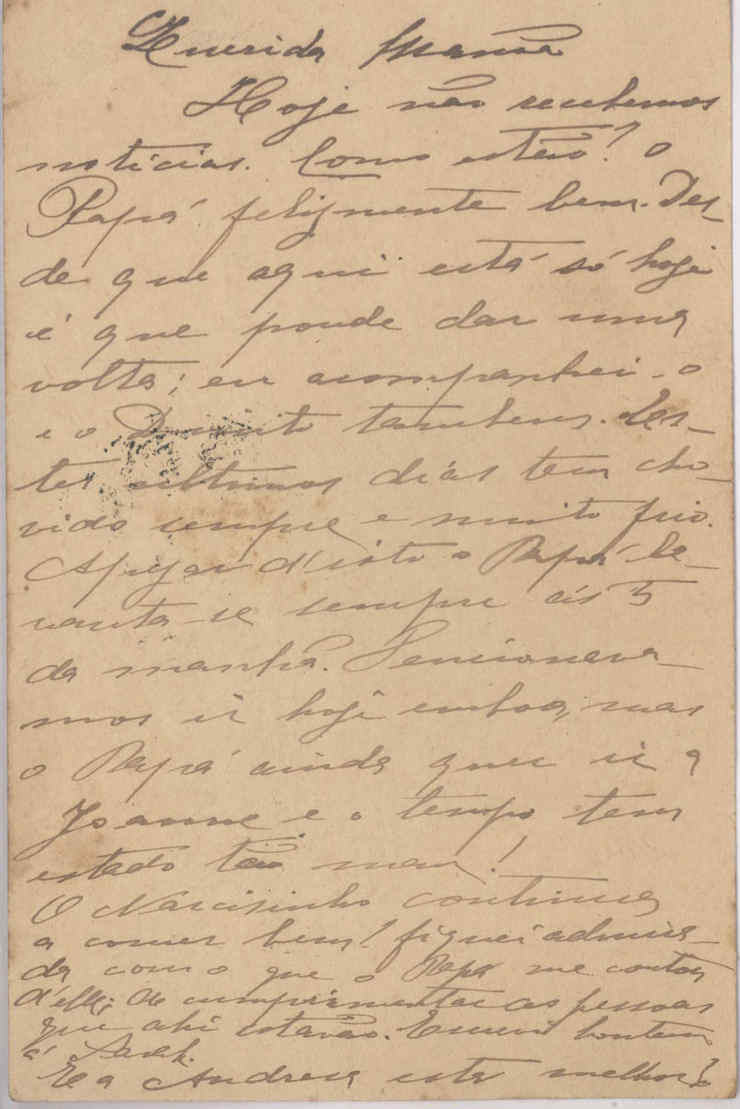 Querida Mamã
Hoje não recebemos
noticias. Como estão? O
Papá felizmente bem. Des-
de que aqui está só hoje
é que poude dar uma
volta; eu acompanhei-o
e o tambem. Nes-
tes ultimos dias tem cho-
vido sempre e muito frio.
Apezar d'isto o Papá le-
vanta-se sempre ás 5
da manhã. Tencionava-
mos ir hoje embora, mas
o Papá ainda quer ir a
e o tempo tem
estado tão mau!
O Narcisinho continua
a comer bem? fiquei admira-
da com o que o Papá me contou
d'elle, de cumprimentar as pessoas
que ahi estavão. Escrevi hontem
á Sarah.
E a Andreza está melhor?